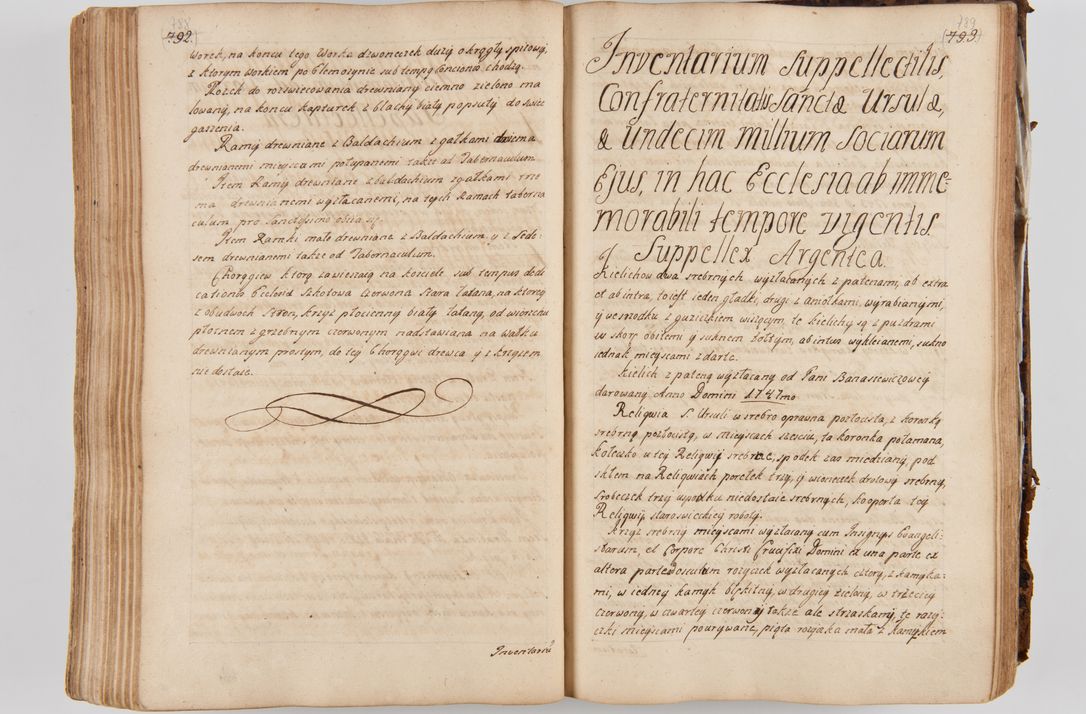 788
792.
worek, na koncu tego Worka dzwoneczek duży okrągły spiżowy,
z ktorym workiem po Elemozynie sub tempą Concionis chodzą.
Rożek do rozswiecowania drewniany ciemno zielono ma
lowany, na koncu kapturek z blachy biały popsuty do swiec
gaszenia.
Ramy drewniane z Baldachium z gałkami dwiema
drewnianemi mieyscami połupanemi także ad Tabernaculum
Item Ramy drewniane z baldachium z gałkami
ma drewnianemi wyzłacanemi, na tych Ramach taberna
culum pro Sanctissimo
Item Ramki małe drewniane z Baldachium y z
sem drewnianemi także od Tabernaculum.
Chorągiew ktorą zawieszaią na kosciele sub tempus dedi
cationis Ecclesiæ Szkotowa czerwona stara łatana, na ktorey
z obudwoch stron, krzyż płocienny biały łatany, od wierzchu
płotnem zgrzebnym czerwonym nadstawiana na wałku
drewnianym prostym, do tey Chorągwi drewca y z krzyżem
nie dostaie.
Inventariū
789
793.
Inventarium Suppellectilis,
Confraternitatis Sanctæ Ursulæ,
& Undecim Millium Sociarum
Ejus, in hac Ecclesia ab imme-
morabili tempore vigentis
Suppellex Argentea.
Kielichow dwa srebrnych wyzłacanych z patenami, ab extra
et ab intra, to iest ieden gładki, drugi z aniołkami, wyrabianymi,
y we srzodku z guziczkiem wiszącym, te kielichy są z puzdrami
w skorę obitemi y suknem żołtym, ab intus wykleianemi, sukno
iednak mieyscami zdarte.
Kielich z pateną wyzłacany od Pani Banasiewiczowey
darowany Anno Domini 1747mo
Religwia S. Ursuli w srebro oprawna pozłocista, z koronką
srebrną pozłocistą, w mieyscach szesciu, ta koronka połamana,
kołeczko u tey Religwij srebrne, spodek zas miedziany, pod
szkłem na Religwiach perełek trzy, y wioneczek drotowy srebrny,
srobeczek trzy uspodku niedostaie srebrnych, kooperta tey
Religwij staroswieckiey roboty.
Krzyż srebrny mieyscami wyzłacany cum Insignijs Evangeli-
starum, et Corpore Christi Crucifixi Domini ex una parte ex
altera parte rozyczek wyzłacanych cztery, z kamyka-
mi, w iedney kamyk błękitny, w drugiey zielony, w trzeciey
czerwony, w czwartey czerwony także ale strzaskany, te rozy-
czki mieyscami pourywane, piąta rozyczka mała z kamykiem